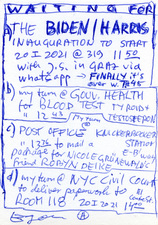 WAITING FOR
a) THE BIDEN/HARRIS
INAUGURATION TO START
20 I 2021 @ 319 1150
with D.S. in GRAZ via
whatsapp → FINALLY it's
over w
b) my turn @ GOUV. HEALTH
for BLOOD TEST TYROID +
1243 TESTOSTERON
c) POST OFFICE KNICKERBOCKER
STATION
to mail a E-B'way
package for NICOLE GRÜNEWALD's
friend ROBYN DEIKE
d) my turn @ NYC Civil Court
to deliver paperwork to
ROOM 118 20 I 2021
A